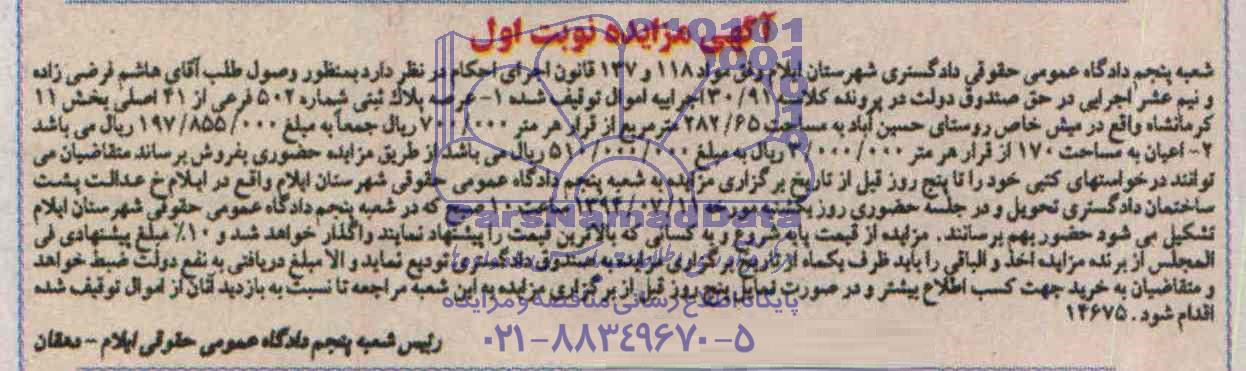 آگهی مزایده نوبت اول
شعبه پنجم دادگاه عمومی حقوقی دادگستری شهرستان ایلام وفق مواد ۱۱۸ و ۱۳۷ قانون اجرای احکام در نظر دارد بمنظور وصول طلب آقای هاشم فرضی زاده
و نیم عشر اجرایی در حق صندوق دولت در پرونده کلاسه ۳۰/۹۱ اجراییه اموال توقیف شده ۱- عرصه پلاک ثبتی شماره ۵۰۲ فرعی از ۴۱ اصلی بخش ۱۱
کرمانشاه واقع در میش خاص روستای حسین آباد به مساحت ۲۸۲/۶۵ مترمربع از قرار هر متر ۷۰۰/۰۰۰ ریال جمعاً به مبلغ ۱۹۷/۸۵۵/۰۰۰ ریال می باشد
۲- اعیان به مساحت ۱۷۰ از قرار هر متر ۳/۰۰۰/۰۰۰ ریال به مبلغ ۵۱۰/۰۰۰/۰۰۰ ریال می باشد از طریق مزایده حضوری بفروش برساند متقاضیان می
توانند درخواستهای کتبی خود را تا پنج روز قبل از تاریخ برگزاری مزایده به شعبه پنجم دادگاه عمومی حقوقی شهرستان ایلام واقع در ایلام خ عدالت پشت
ساختمان دادگستری تحویل و در جلسه حضوری روز یکشنبه مورخه ۱۳۹۴/۰۷/ ساعت ۱۰ صبح که در شعبه پنجم دادگاه عمومی حقوقی شهرستان ایلام
تشکیل می شود حضور بهم برسانند. مزایده از قیمت پایه شروع و به کسانی که بالاترین قیمت را پیشنهاد نمایند واگذار خواهد شد و ۱۰٪ مبلغ پیشنهادی فی
المجلس از برنده مزایده اخذ و الباقی را باید ظرف یکماه از تاریخ برگزاری مزایده به صندوق دادگستری تودیع نماید و الا مبلغ دریافتی به نفع دولت ضبط خواهد
و متقاضیان به خرید جهت کسب اطلاع بیشتر و در صورت تمایل پنج روز قبل از برگزاری مزایده به این شعبه مراجعه تا نسبت به بازدید آنان از اموال توقیف شده
اقدام شود. ۱۴۶۷۵
رئیس شعبه پنجم دادگاه عمومی حقوقی ایلام - دهقان
ParsNamadData
پایگاه اطلاع رسانی مناقصه و مزایده
۰۲۱-۸۸۳۴۹۶۷۰-۵